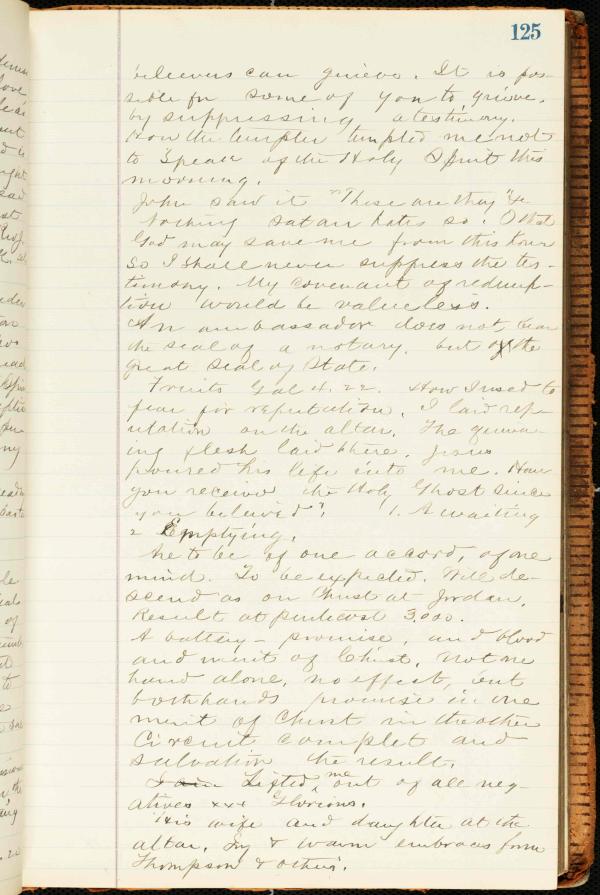 125
believers can grieve. It is pos-
sible for some of you to grieve.
by suppressing a testimony.
How the tempter tempted me not
to speak of the Holy Spirit this
morning.
John saw it "These are they &c
Nothing satan hates so. O that
God may save me from this hour
So I shall never suppress the tes-
timony. My covenant of redemp-
tion would be valueless.
An ambassador does not, bear
the seal of a notary. but of the
great seal of State.
Fruits Gal 4. 22. How I used to
fear for reputation. I laid rep-
utation on the altar. The quiver-
ing flesh laid there. Jesus
poured his life into me. Have
you received the Holy Ghost since
you believed"? 1. A waiting
2 Emptying.
be of one accord, of one
mind. To be expected. Will de-
scend as on Christ at Jordan.
Result at pentecost 3,000.
A battery - promise, and blood
and merit of Christ. not one
hand alone, no effect, but
both hands promise in one
merit of Christ in the other
Circuit complet and
salvation the result.
Lifted me out of all neg-
atives xxx Glorious.
His wife and daughter at the
altar. Joy & warm embraces from
Thompson & others.